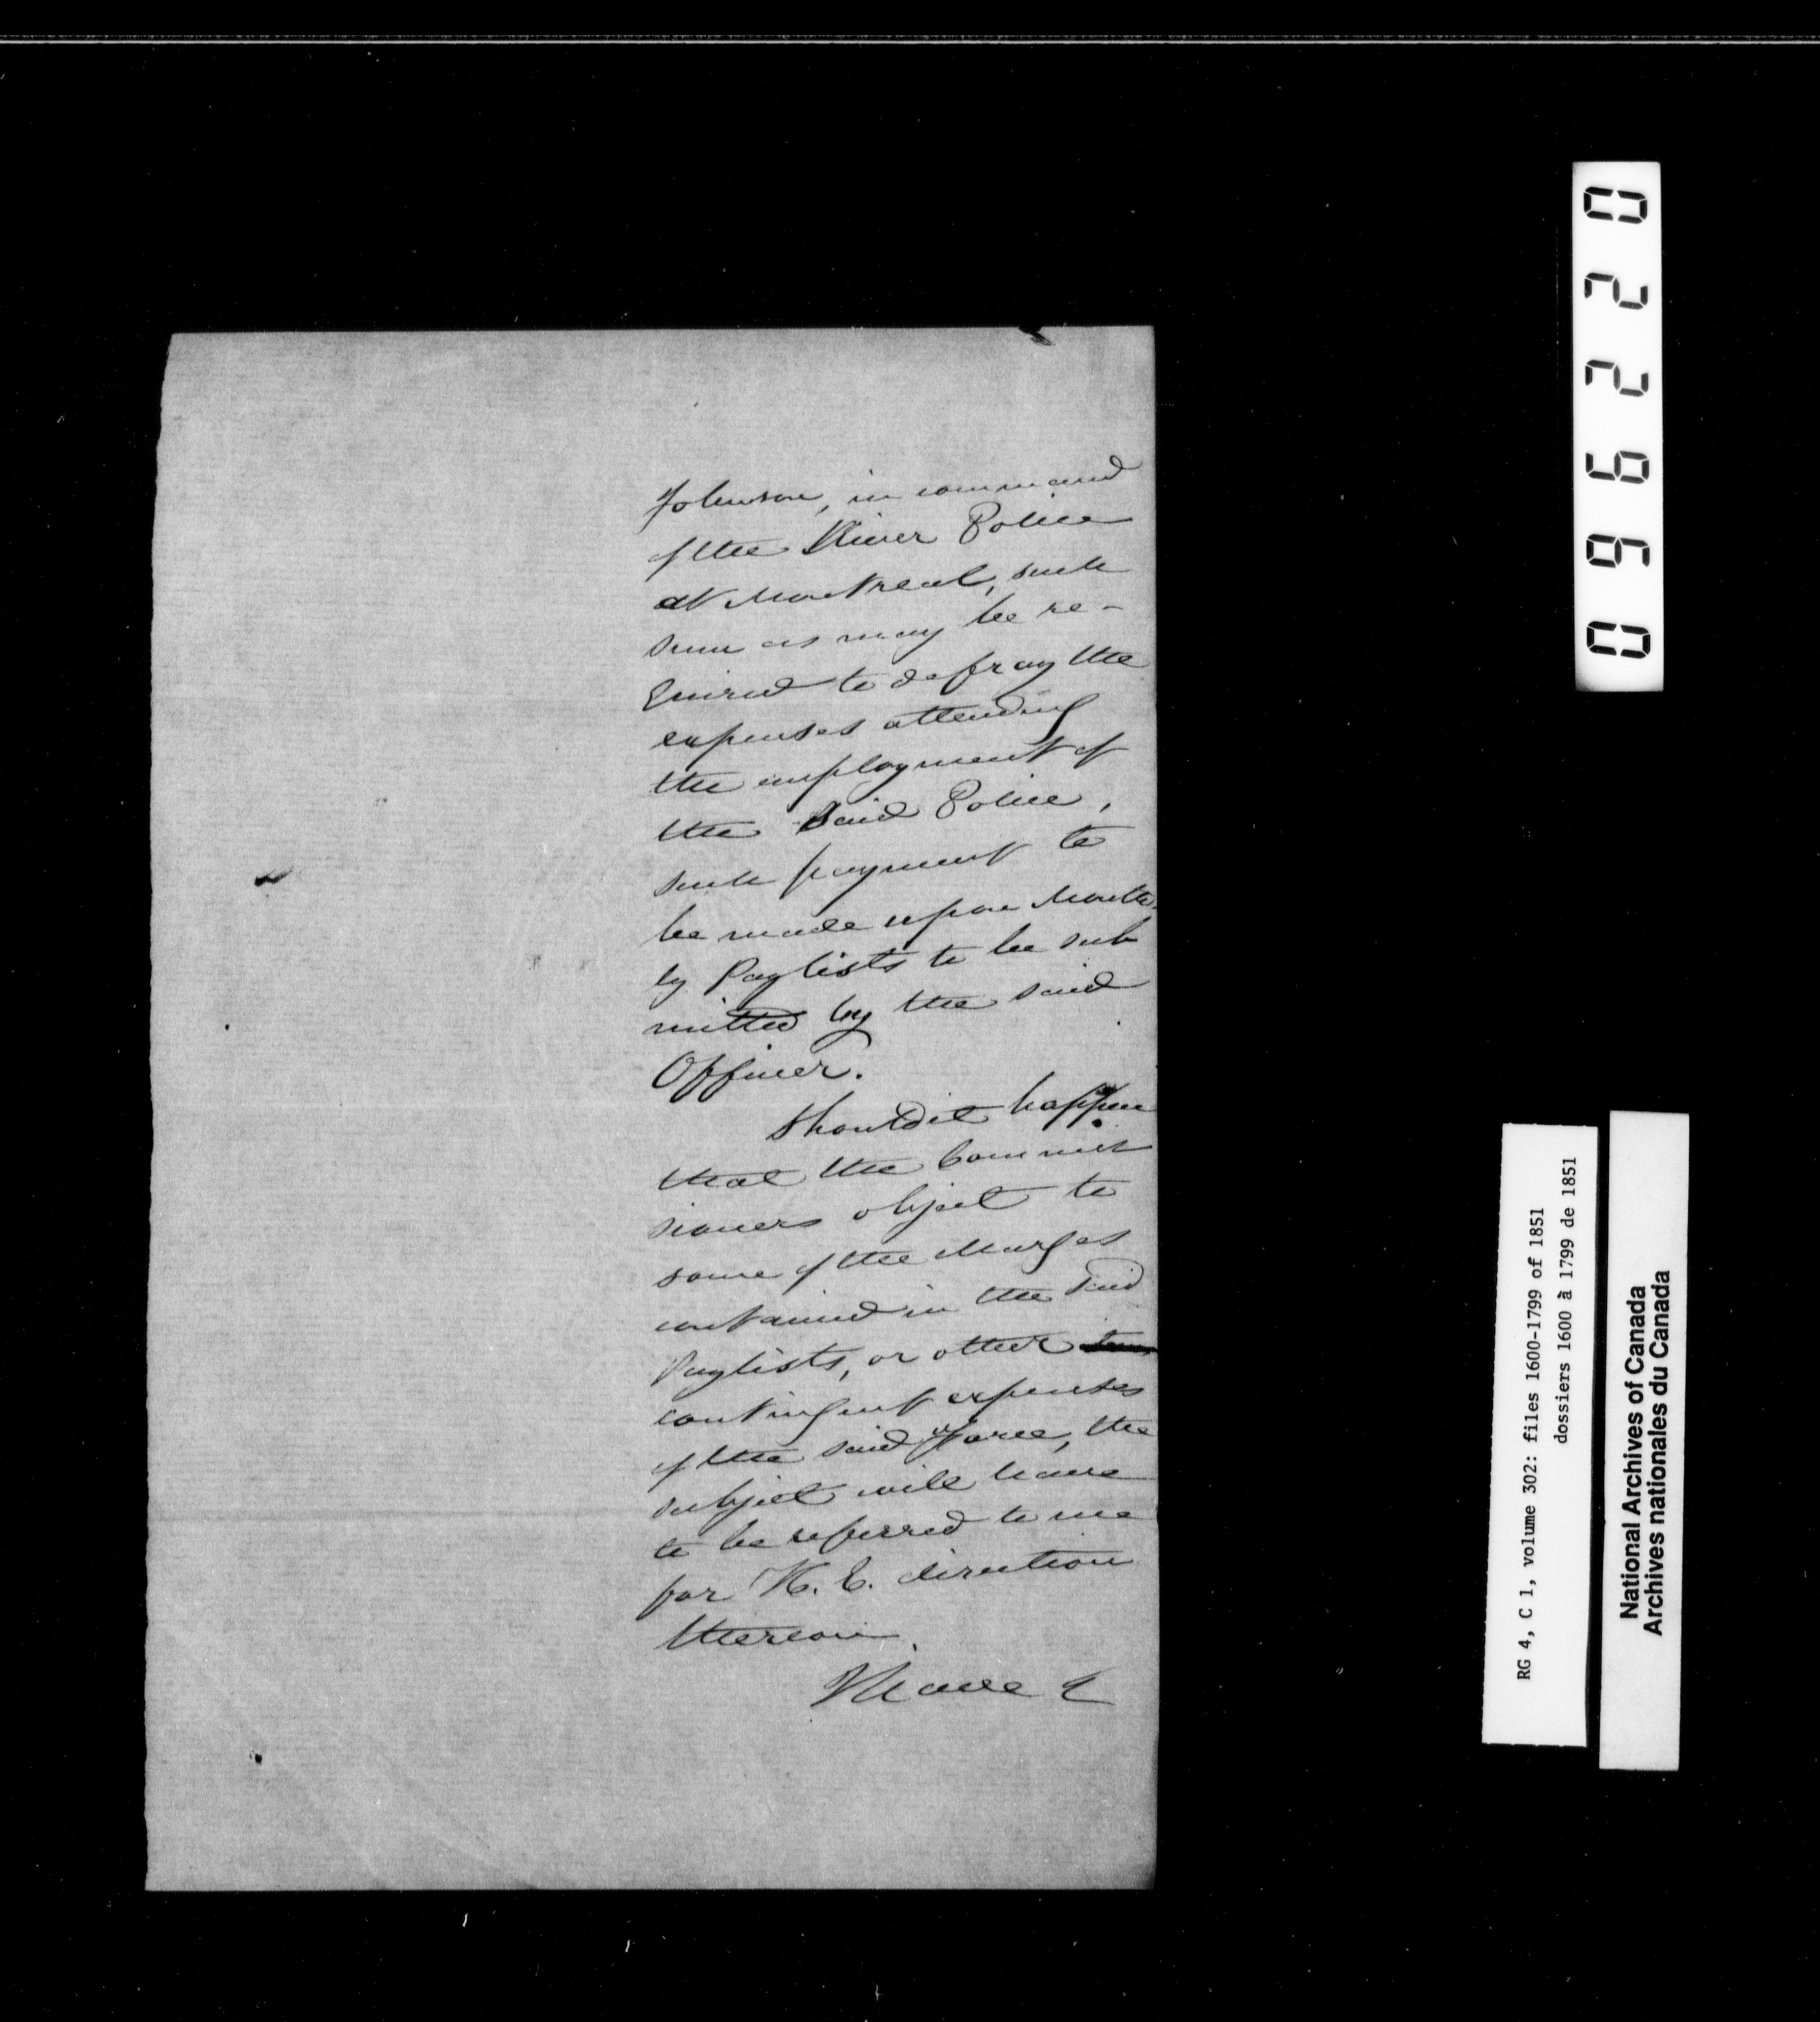 Johnson, in command
of the River Police
at Montreal, such
sum as may be re-
quired to defray the
expenses attending
the employment of
the said Police,
such payment to
be made upon Month-
ly Paylists to be sub
mitted by the said
Officer.
Should it happen
that the Commis
sioners object to
some of the charges
contained in the said
Paylists, or other
contingent expenses
of the said Force, the
subject will have
to be referred to me
for H. E. direction
thereon.
I have &
096220
RG 4, C 1, volume 302: files 1600-1799 of 1851
dossiers 1600 à 1799 de 1851
National Archives of Canada
Archives nationales du Canada